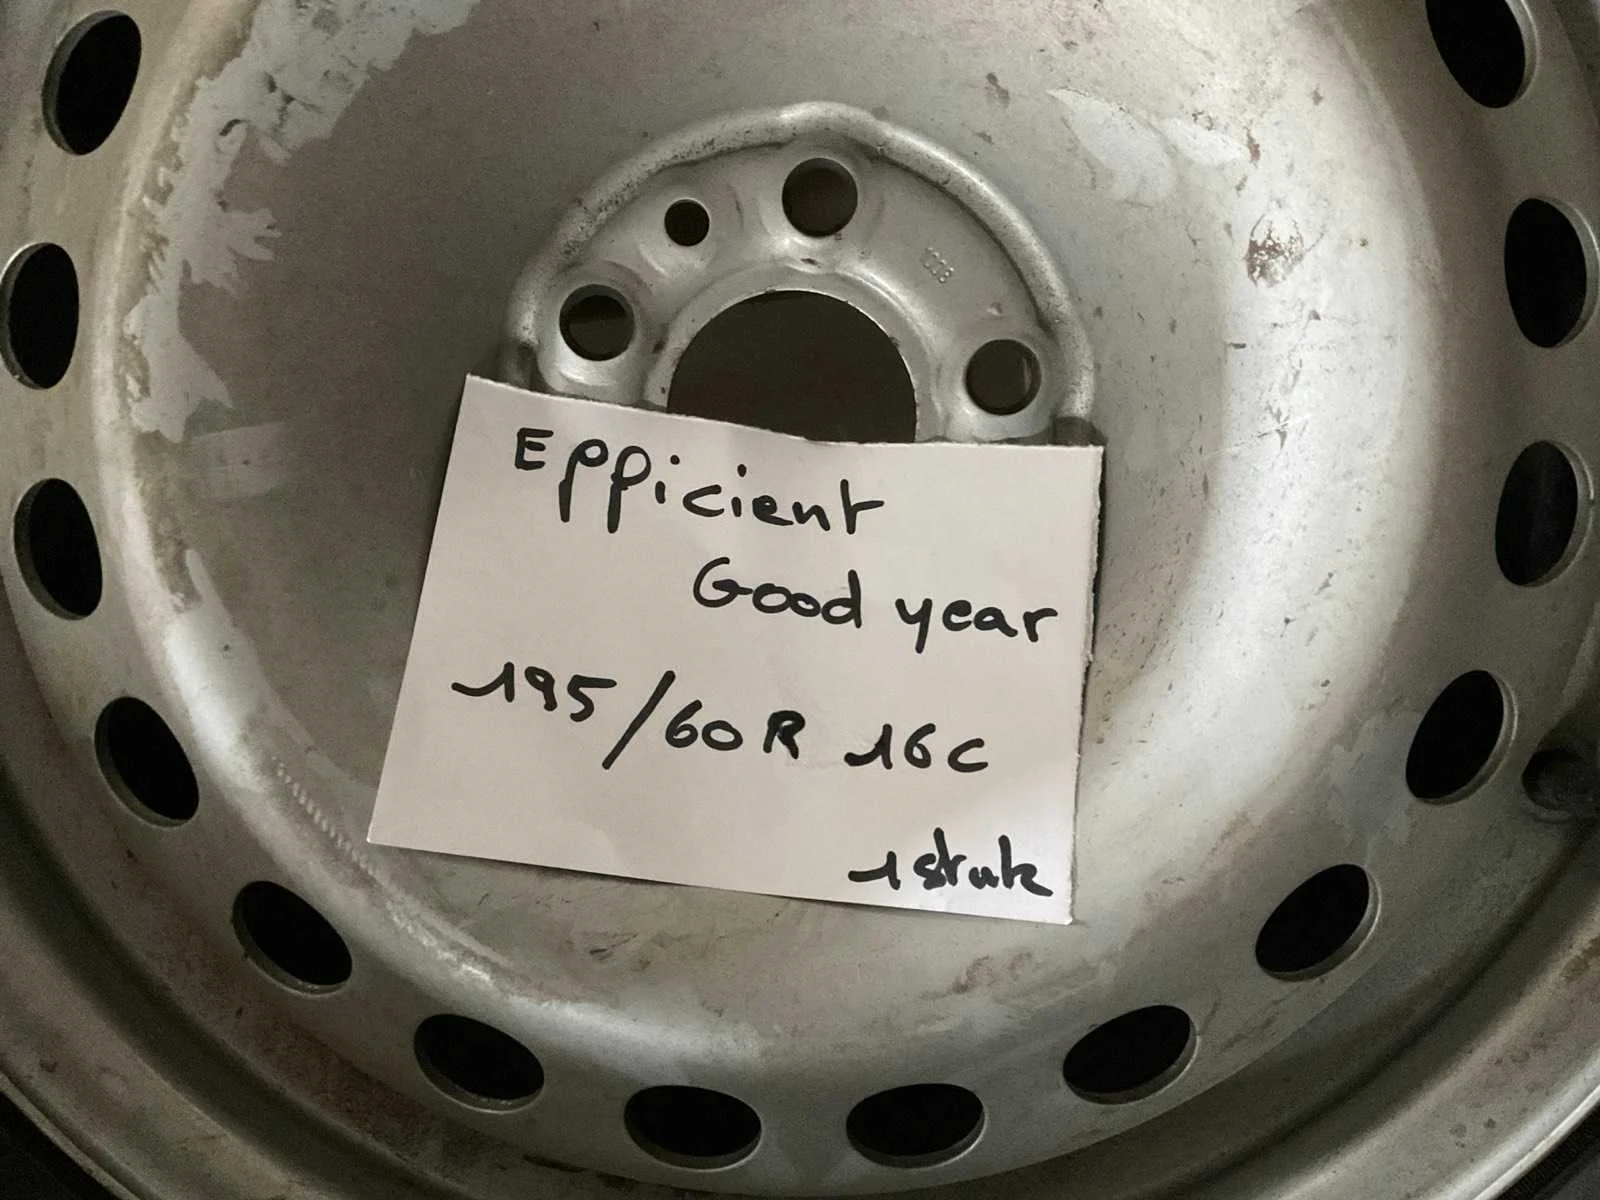 Efficient
Good year
195/60R 16C
1 stuk